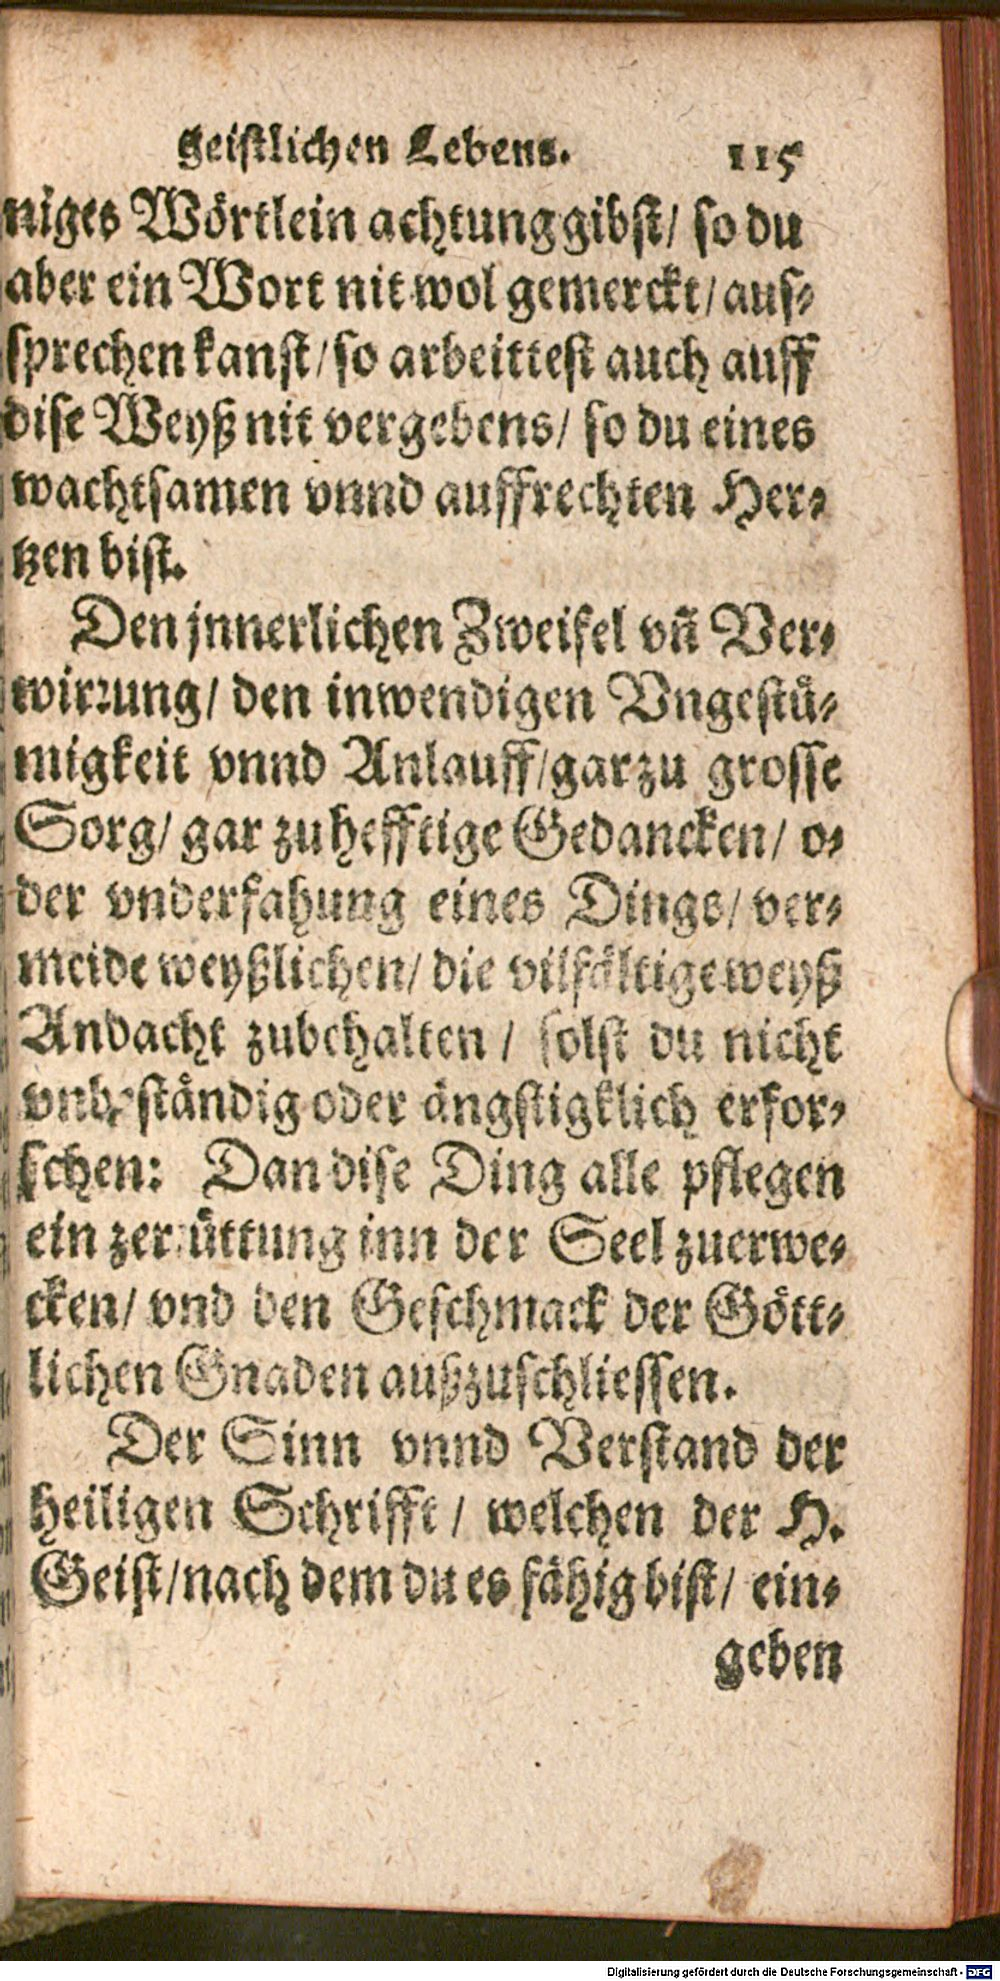 geistlichen Lebens. 115
niges Wörtlein achtung gibst/ so du
aber ein Wort nit wol gemerckt/ aus⸗
sprechen kanst/ so arbeittest auch auff
dise Weyß nit vergebens/ so du eines
wachtsamen vnnd auffrechten Her⸗
tzen bist.
Den jnnerlichen Zweifel vñ Ver⸗
wirrung/ den inwendigen Vngestü⸗
migkeit vnnd Anlauff/ gar zu grosse
Sorg/ gar zu hefftige Gedancken/ o⸗
der vnderfahung eines Dings/ ver⸗
meide weyßlichen/ die vilfältige weyß
Andacht zubehalten / solst du nicht
vnbeständig oder ängstigklich erfor⸗
schen: Dan dise Ding alle pflegen
ein zerrüttung inn der Seel zuerwe⸗
cken/ vnd den Geschmack der Gött⸗
lichen Gnaden außzuschliessen.
Der Sinn vnnd Verstand der
heiligen Schrifft / welchen der H.
Geist/ nach dem du es fähig bist/ ein⸗
geben
Digitalisierung gefördert durch die Deutsche Forschungsgemeinschaft - DFG